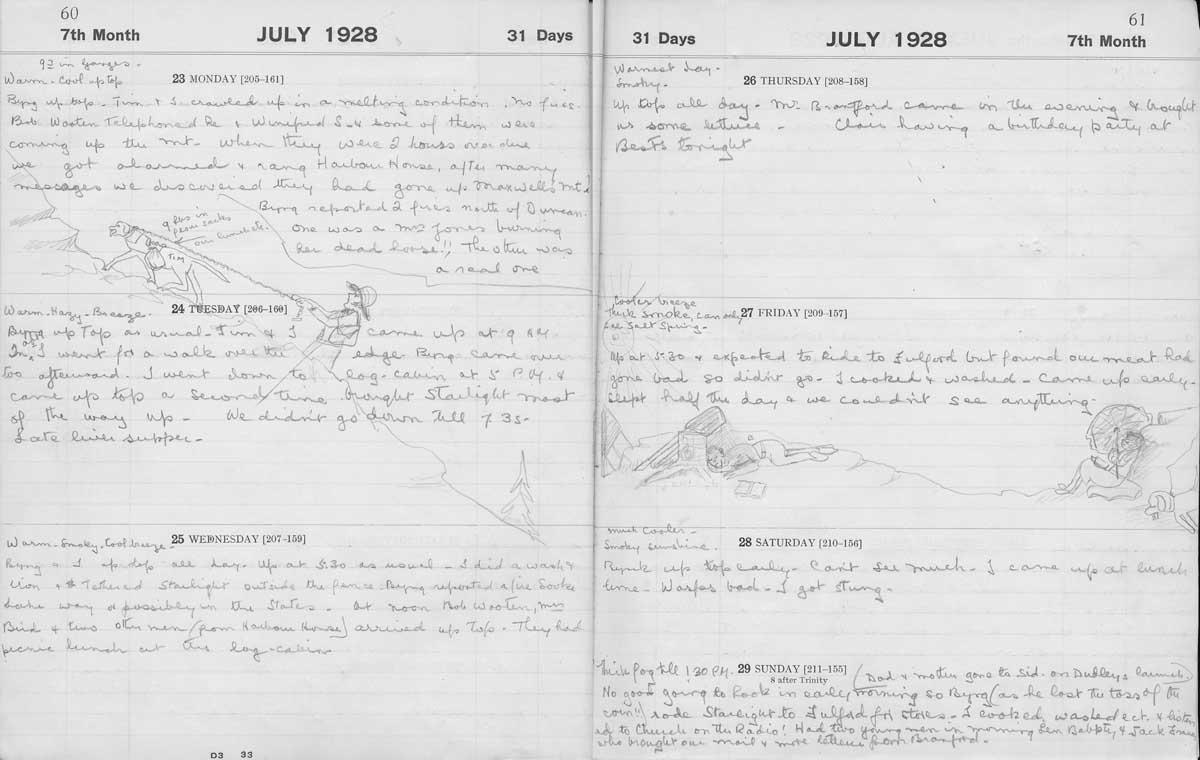 60
7th Month
JULY 1928
31 Days
in Ganges.
Warm - Cool up top
23 MONDAY [205–161]
Byng up top - Tim & I crawled up in a melting condition. No fires.
Bob Wooten Telephoned Re & Winifred S. & some of them were
coming up the mt. When they were 2 hours over due
we got alarmed & rang Harbour House, after many
messages we discovered they had gone up Maxwell's Mt!
Byng reported 2 fires north of Duncan.
One was a Mrs Jones burning
her dead horse!! The other was
a real one
9 lbs in
our lunch etc.
TIM
Warm - Hazy - Breeze.
24 TUESDAY [206–160]
Byng up Top as usual - Tim & I came up at 9
I went for a walk over the edge Byng came over
too afterward. I went down to log-cabin at 5 P.M. &
came up top a second time bought Starlight most
of the way up - We didn't go down till 7 35 -
Late liver supper -
Warm - Smoky. Cool breeze -
25 WEDNESDAY [207–159]
Byng & I up top all day. Up at 5:30 as usual - I did a wash &
iron & Tethered Starlight outside the fence. Byng reported a fire Sooke
way & possibly in the States. At noon Bob Wooten, Mrs
Bird & two other men (from Harbour House) arrived up Top. They had
picnic lunch at the log-cabin
D3 33
61
31 Days
JULY 1928
7th Month
Warmest day -
Smoky -
26 THURSDAY [208–158]
Up top all day - Mr. Branford came in the evening & brought
us some lettuce - Clair having a birthday party at
Best's tonight
Cooler breeze
Thick Smoke, can only
see Salt Spring -
27 FRIDAY [209–157]
Up at 5:30 & expected to ride to Fulford but found our meat had
gone bad so didn't go - I cooked & washed - Came up early -
slept half the day & we couldn't see anything -
Much Cooler -
Smoky sunshine.
28 SATURDAY [210–156]
up top early - Can't see much - I came up at lunch
time - Wasps bad - I got stung -
Thick fog till 1 30 P.M.
29 SUNDAY [211–155]
8 after Trinity
(Dad & mother gone to Sid. on Dudley's launch)
No good going to look in early morning so Byng (as he lost the toss of the
coin!!) rode Starlight to Fulford for stores - I cooked, washed ect. & listen
ed to Church on the Radio! Had two young men in morning Len & Jack
who brought our mail & more lettuce from Branford -